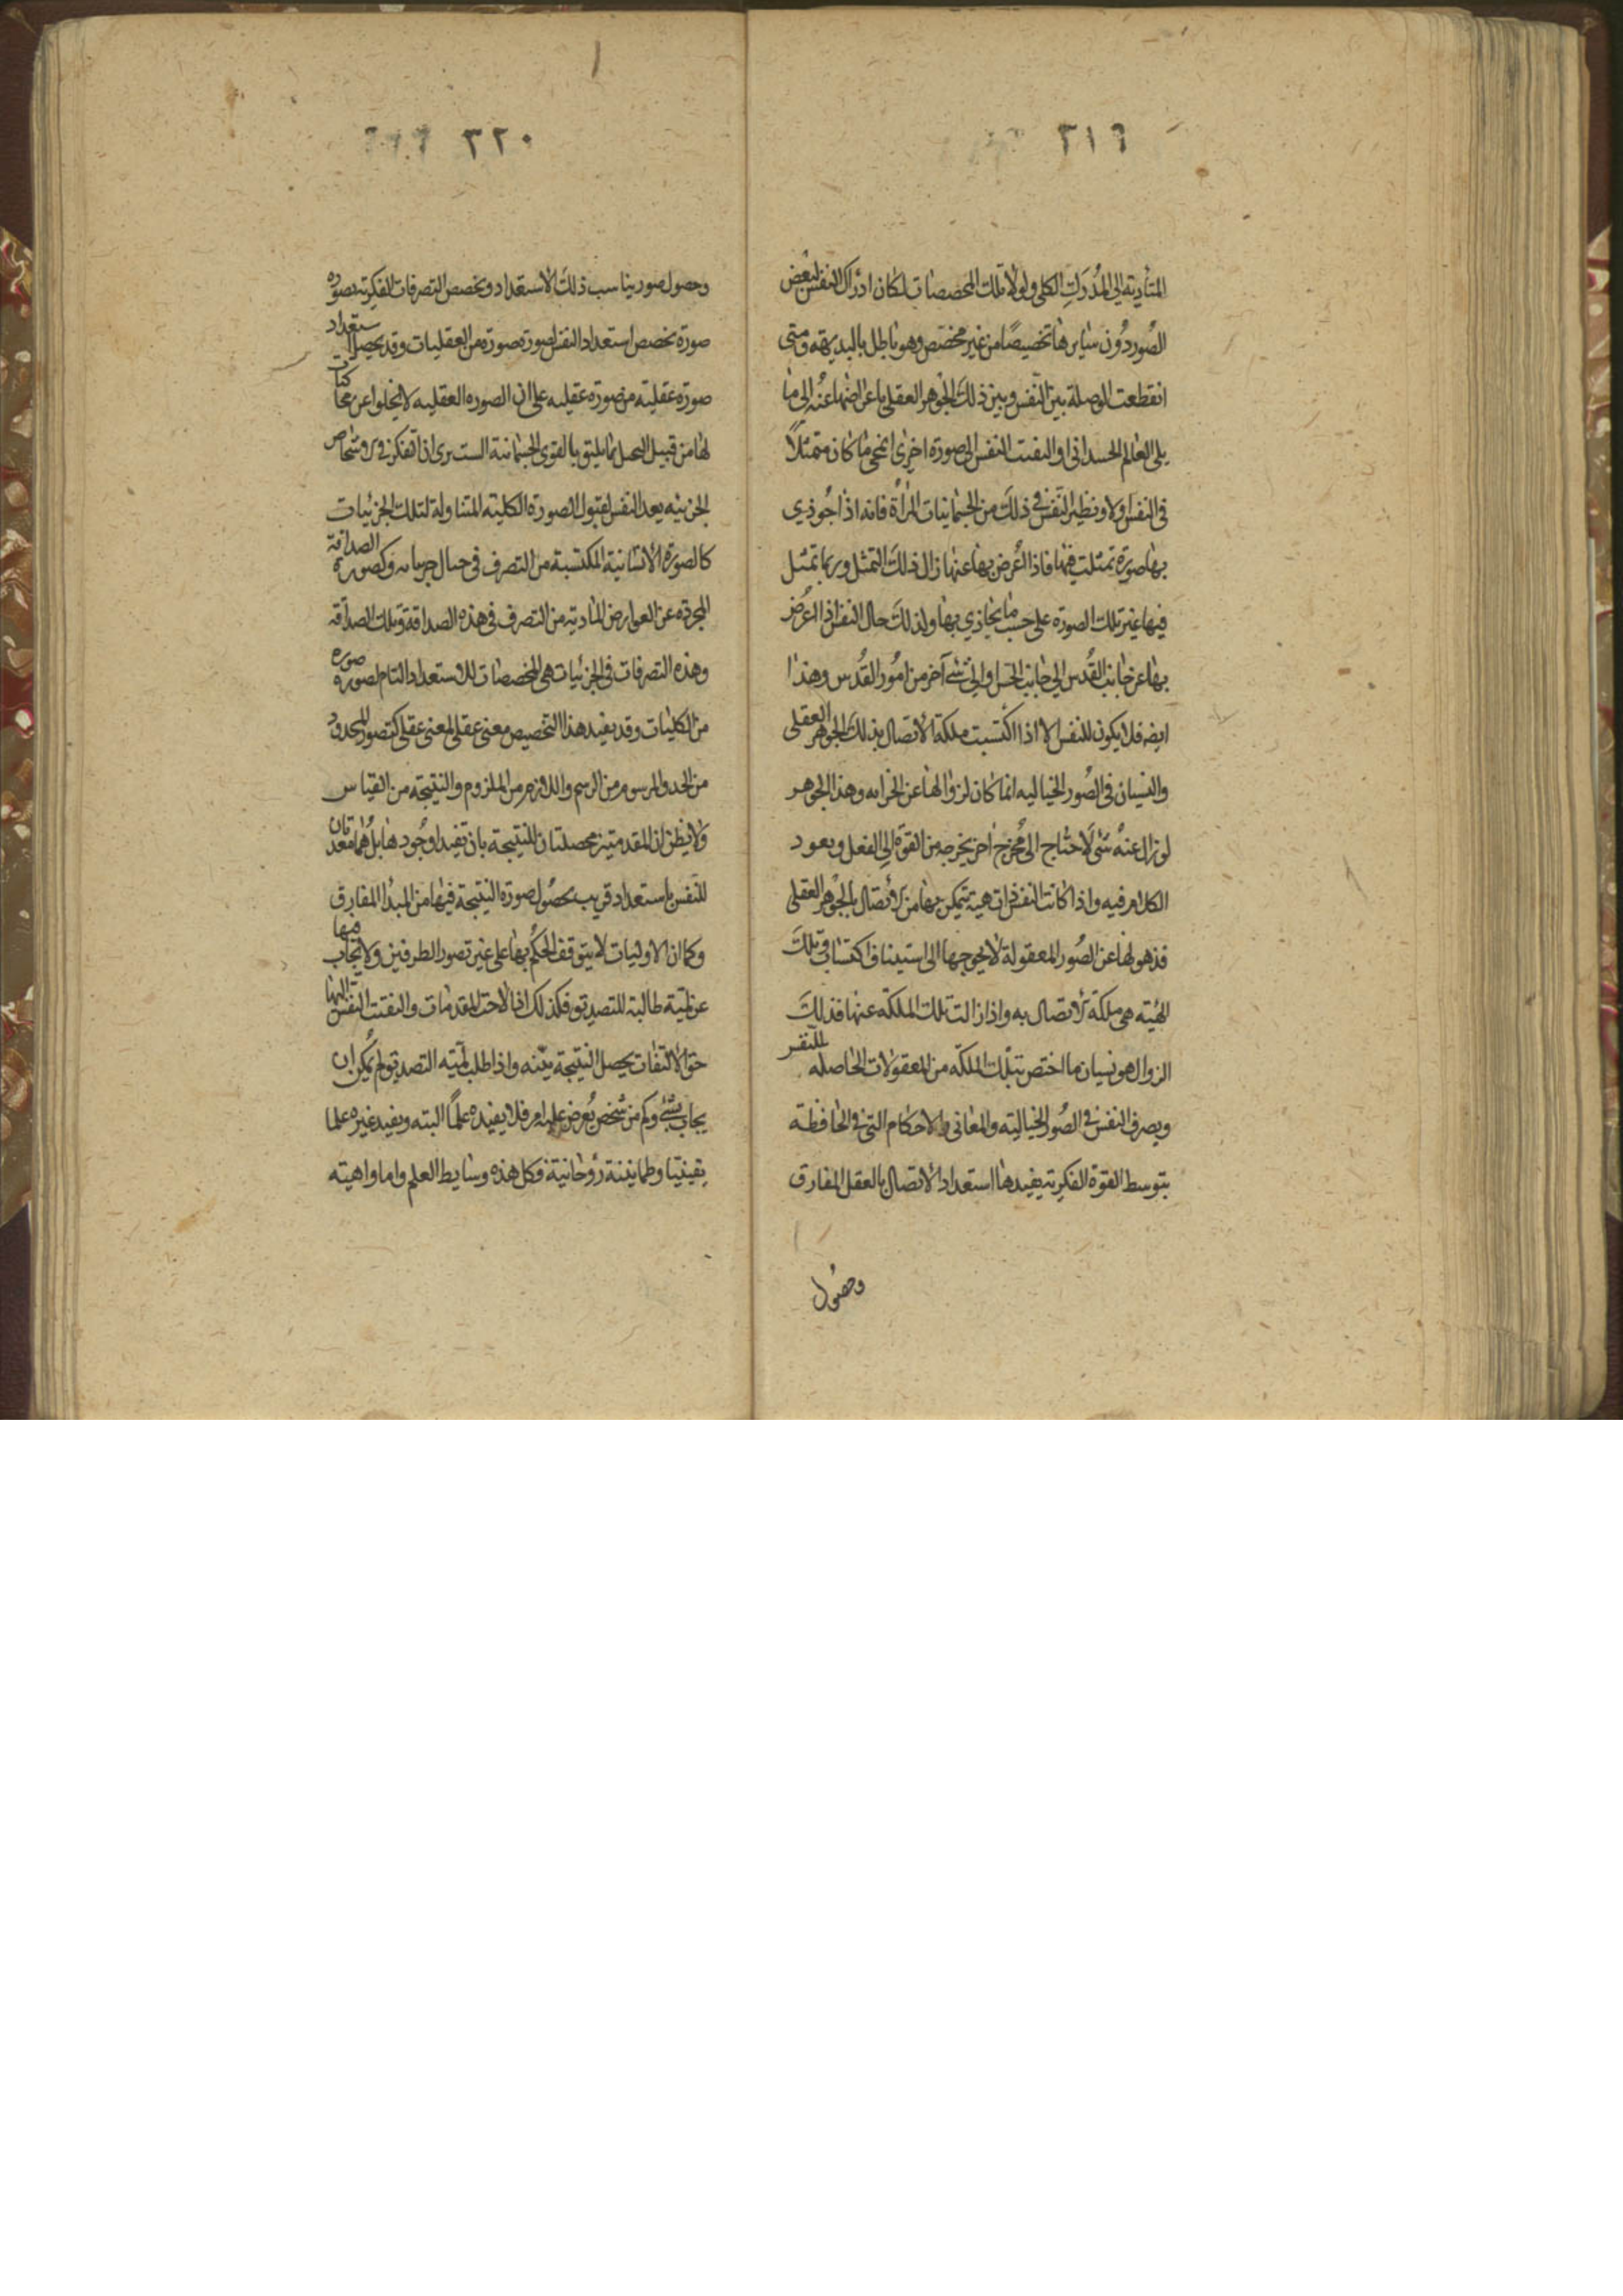 ٣١٩
المتأدية الى المدركات الكلى ولولا تلك المخصصات لكان ادراك النفس لبعض
الصور دون سايرها تخصيصًا من غير مخصص وهو باطل بالبديهة ومتى
انقطعت الوصلة بين النفس وبين ذلك الجوهر العقلى باعراضها عنه الى ما
يلى العالم الجسدانى او التفتت النفس الى صورة اخرى انمحى ما كان متمثلاً
فى النفس اولا ونظير النفس فى ذلك من الجسمانيات المرآة فانه اذا حوذى
بها صورة تمثلت فيها فاذا اعرض بها عنها زال ذلك التمثل وربما تمثل
فيها غير تلك الصورة على حسب ما يحاذى بها ولذلك حال النفس اذا اعرض
بها عن جانب القدس الى جانب الحس او الى شئ آخر من امور القدس وهذا
ايضه فلا يكون للنفس الا اذا اكتسبت ملكة الاتصال بذلك الجوهر العقلى
والنسيان فى الصور الخياليه انما كان لزوالها عن الخزانه وهذا الجوهر
لو زال عنه شئ لاحتاج الى مخرج اخر يخرجه من القوة الى الفعل ويعود
الكلام فيه واذا كانت النفس ذات هيئة تتمكن بها من الاتصال بالجوهر العقلى
فذهولها عن الصور المعقولة لا يحوجها الى استيناف اكتساب تلك
الهيئه هى ملكة الاتصال به واذا زالت تلك الملكة عنها فذلك
الزوال هو نسيان ما اختص بتلك الملكة من المعقولات الحاصله للنفس
ويصرف النفس فى الصور الخيالية والمعانى والاحكام التى فى الحافظة
بتوسط القوة الفكرية يفيدها استعداد الاتصال بالعقل المفارق
وحصول
٣٢٠
وحصول صور يناسب ذلك الاستعداد وتخصص التصرفات الفكرية بصورة
صورة تخصص استعداد النفس لصورة صورة من العقليات وقد يحصل استعداد
صورة عقلية من صورة عقليه على ان الصوره العقليه لا يخلوا عن محاكات
لها من قبيل التخيل بما يليق بالقوى الجسمانية الست ترى ان التفكر فى الاشخاص
الجزئيه يعد النفس لقبول الصورة الكلية المتناولة لتلك الجزئيات
كالصورة الانسانية المكتسبة من التصرف فى خيال جزئياته وكصورة الصداقة
المجردة عن العوارض المادية من التصرف فى هذه الصداقة وتلك الصداقة
وهذه التصرفات فى الجزئيات هى المخصصات للاستعداد التام لصورة صوره
من الكليات وقد يفيد هذا التخصيص معنى عقلى لمعنى عقلى كتصور المحدود
من الحد والمرسوم من الرسم واللازم من الملزوم والنتيجة من القياس
ولا يظن ان المقدمتين محصلتان للنتيجة بان تفيدا وجودها بل هما معدتان
للنفس باستعداد قريب بحصول صورة النتيجة فيها من المبدأ المفارق
وكما ان الاوليات لا يتوقف الحكم بها على غير تصور الطرفين ولا يجاب فيها
عن لمية طالبة للتصديق فكذلك اذا لاحت المقدمات والتفتت النفس اليها
حق الالتفات يحصل النتيجة بينه واذا طلب لمية التصديق لم يمكن ان
يجاب بشئ وكم من شخص يعرض عليه امر فلا يفيده علمًا البته ويفيد غيره علما
يقينيا وطمانينة روحانية فكل هذه وسايط العلم واما واهبته